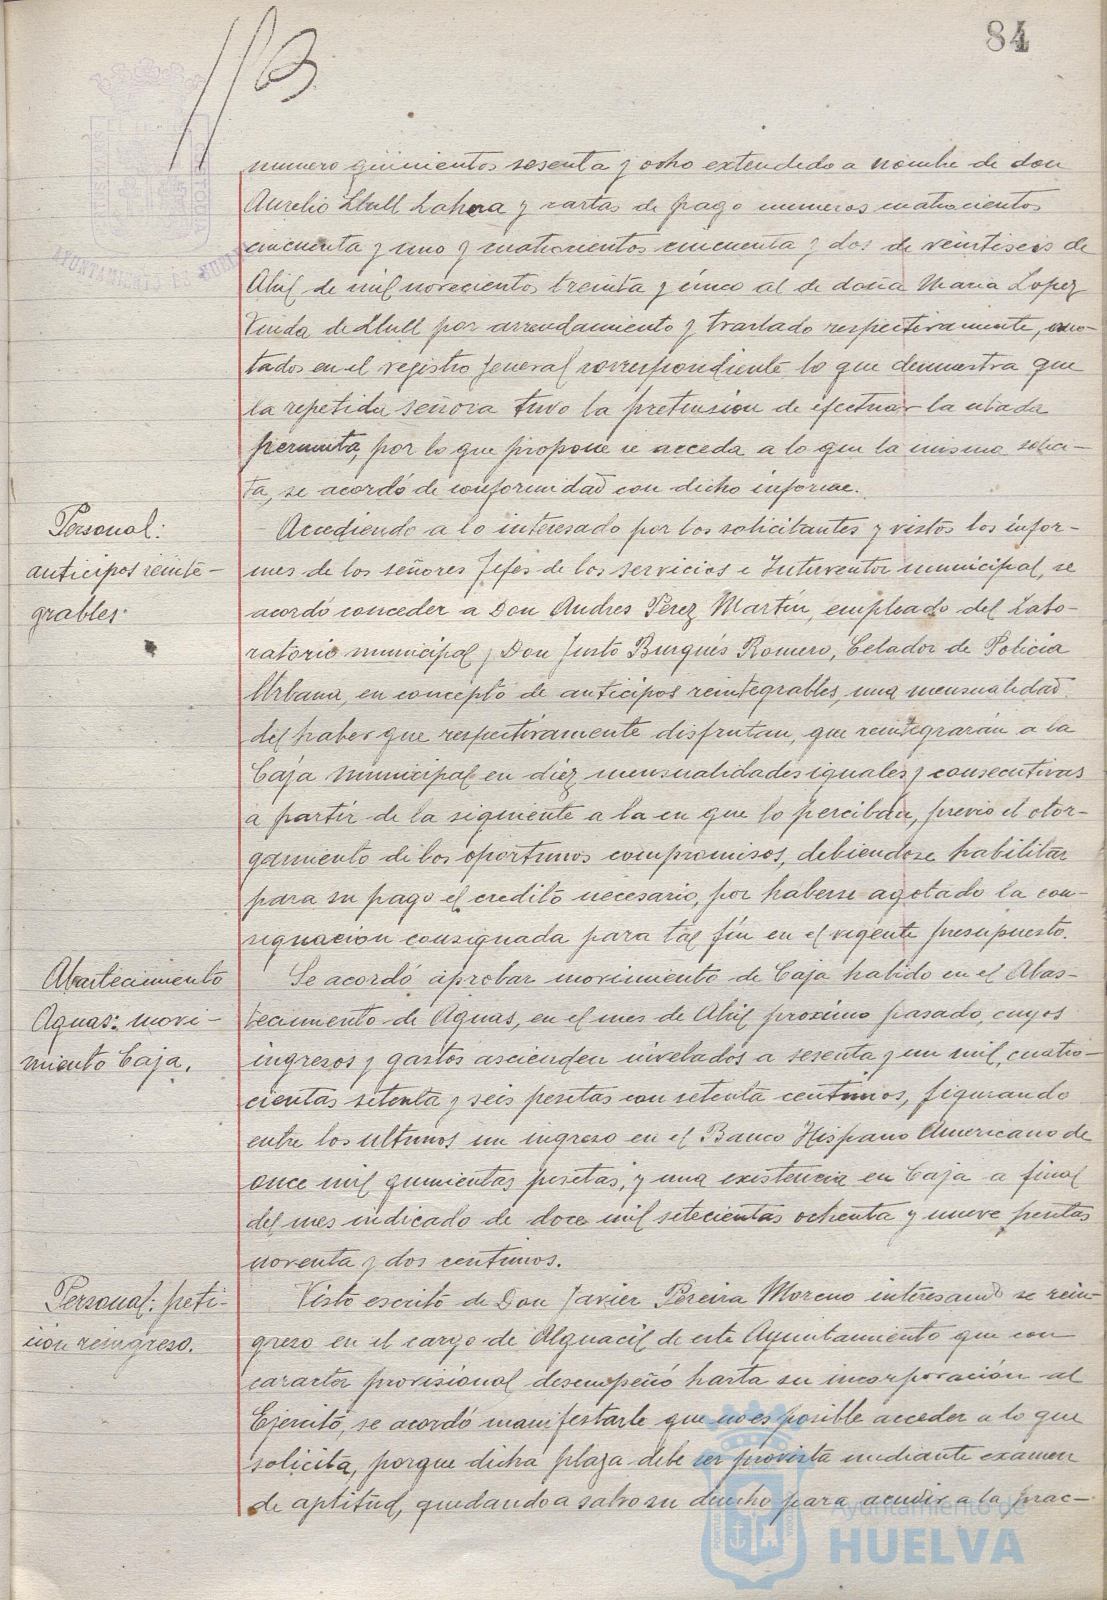 84
numero quinientos sesenta y ocho extendido a nombre de don
Aurelio Llull Lahera y cartas de pago numeros cuatrocientos
cincuenta y uno y cuatrocientos cincuenta y dos de veintiseis de
Abril de mil novecientos treinta y cinco al de doña Maria Lopez
Viuda de Llull por arrendamiento y traslado respectivamente, ano-
tados en el registro general correspondiente lo que demuestra que
la repetida señora tuvo la pretension de efectuar la citada
permuta, por lo que propone se acceda a lo que la misma solici-
ta, se acordó de conformidad con dicho informe.
Personal:
anticipos reinte-
grables.
Accediendo a lo interesado por los solicitantes y vistos los infor-
mes de los señores Jefes de los servicios e Interventor municipal, se
acordó conceder a Don Andres Perez Martín, empleado del Labo-
ratorio municipal y Don Justo Burgués Romero, Celador de Policia
Urbana, en concepto de anticipos reintegrables, una mensualidad
del haber que respectivamente disfrutan, que reintegrarán a la
Caja municipal en diez mensualidades iguales y consecutivas
a partir de la siguiente a la en que lo perciban, previo el otor-
gamiento de los oportunos compromisos, debiendose habilitar
para su pago el credito necesario, por haberse agotado la con-
signacion consignada para tal fin en el vigente presupuesto.
Abastecimiento
Aguas: movi-
miento Caja.
Se acordó aprobar movimiento de Caja habido en el Abas-
tecimiento de Aguas, en el mes de Abril proximo pasado, cuyos
ingresos y gastos ascienden nivelados a sesenta y un mil, cuatro-
cientas setenta y seis pesetas con setenta centimos, figurando
entre los ultimos un ingreso en el Banco Hispano Americano de
once mil quinientas pesetas, y una existencia en Caja a final
del mes indicado de doce mil setecientas ochenta y nueve pesetas
noventa y dos centimos.
Personal: peti-
ción reingreso.
Visto escrito de Don Javier Pereira Moreno interesando se rein-
greso en el cargo de Alguacil de este Ayuntamiento que con
caracter provisional desempeñó hasta su incorporación al
Ejercito, se acordó manifestarle que no es posible acceder a lo que
solicita, porque dicha plaza debe ser provista mediante examen
de aptitud, quedando a salvo su derecho para acudir a la prac-
Ayuntamiento de
HUELVA